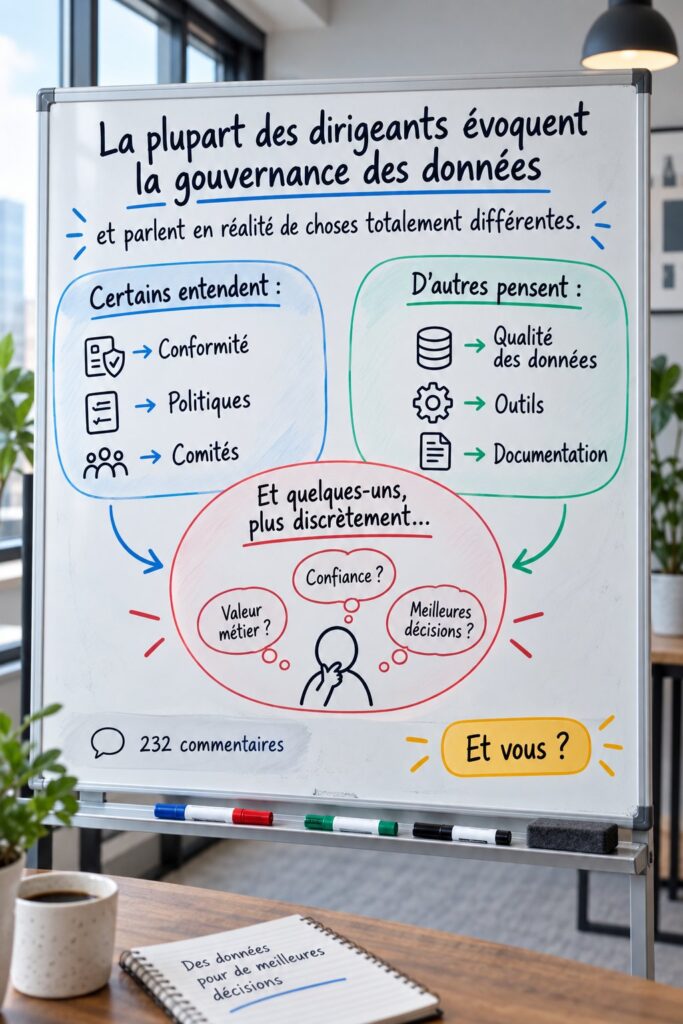 La plupart des dirigeants évoquent
la gouvernance des données
et parlent en réalité de choses totalement différentes.
Certains entendent :
→ Conformité
→ Politiques
→ Comités
D'autres pensent :
→ Qualité
des données
→ Outils
→ Documentation
Et quelques-uns,
plus discrètement...
Confiance ?
Valeur
métier ?
Meilleures
décisions ?
232 commentaires
Et vous ?
Des données
pour de meilleures
décisions